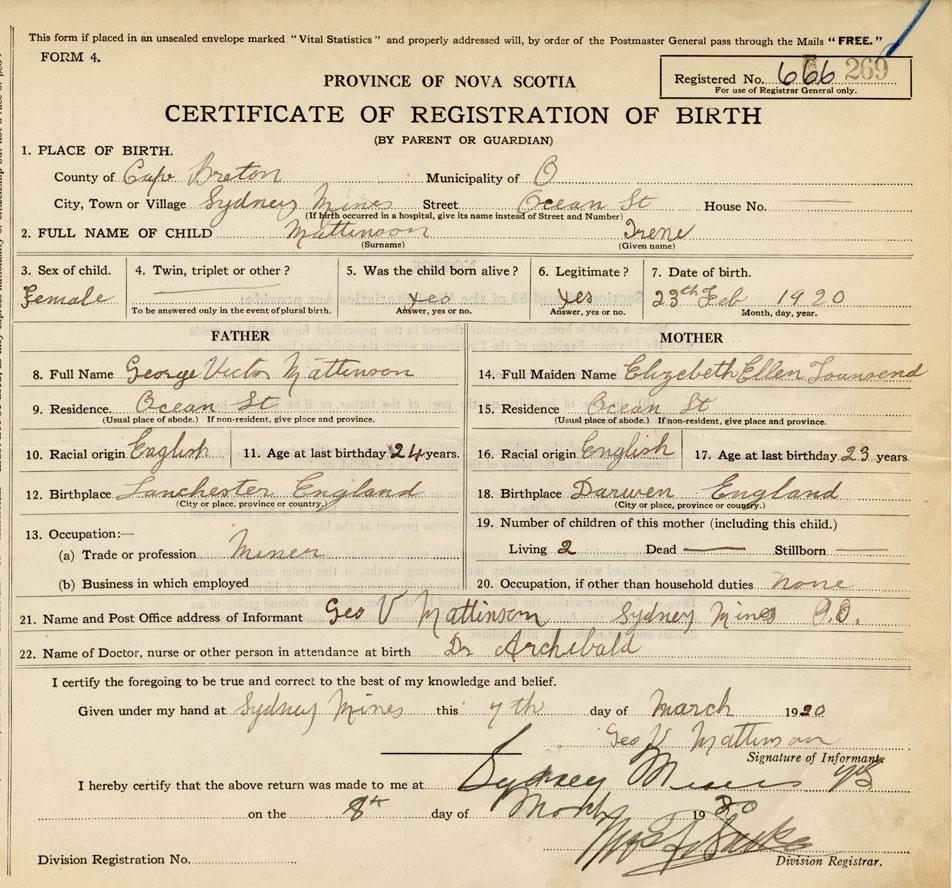 This form if placed in an unsealed envelope marked "Vital Statistics" and properly addressed will, by order of the Postmaster General pass through the Mails "FREE."
FORM 4.
PROVINCE OF NOVA SCOTIA
Registered No. 666 269
For use of Registrar General only.
CERTIFICATE OF REGISTRATION OF BIRTH
(BY PARENT OR GUARDIAN)
1. PLACE OF BIRTH.
County of Cape Breton Municipality of
City, Town or Village Sydney Mines Street Ocean St House No.
(If birth occurred in a hospital, give its name instead of Street and Number)
2. FULL NAME OF CHILD Mattinson Irene
(Surname) (Given name)
3. Sex of child. 4. Twin, triplet or other? 5. Was the child born alive? 6. Legitimate? 7. Date of birth.
Female yes yes 23th Feb 1920
To be answered only in the event of plural birth. Answer, yes or no. Answer, yes or no. Month, day, year.
FATHER MOTHER
8. Full Name George Victor Mattinson 14. Full Maiden Name Elizebeth Ellen Townsend
9. Residence. Ocean St 15. Residence Ocean St
(Usual place of abode.) If non-resident, give place and province. (Usual place of abode.) If non-resident, give place and province.
10. Racial origin English 11. Age at last birthday 24 years. 16. Racial origin English 17. Age at last birthday 23 years
12. Birthplace Lanchester England 18. Birthplace Darwen England
(City or place, province or country.) (City or place, province or country.)
13. Occupation:— 19. Number of children of this mother (including this child.)
(a) Trade or profession Miner Living 2 Dead — Stillborn —
(b) Business in which employed 20. Occupation, if other than household duties none
21. Name and Post Office address of Informant Geo V Mattinson Sydney Mines P.O.
22. Name of Doctor, nurse or other person in attendance at birth Dr Archibald
I certify the foregoing to be true and correct to the best of my knowledge and belief.
Given under my hand at Sydney Mines this 7th day of March 1920
Geo V Mattinson
Signature of Informant.
I hereby certify that the above return was made to me at Sydney Mines
on the 8th day of March 1920
Division Registration No. Division Registrar.